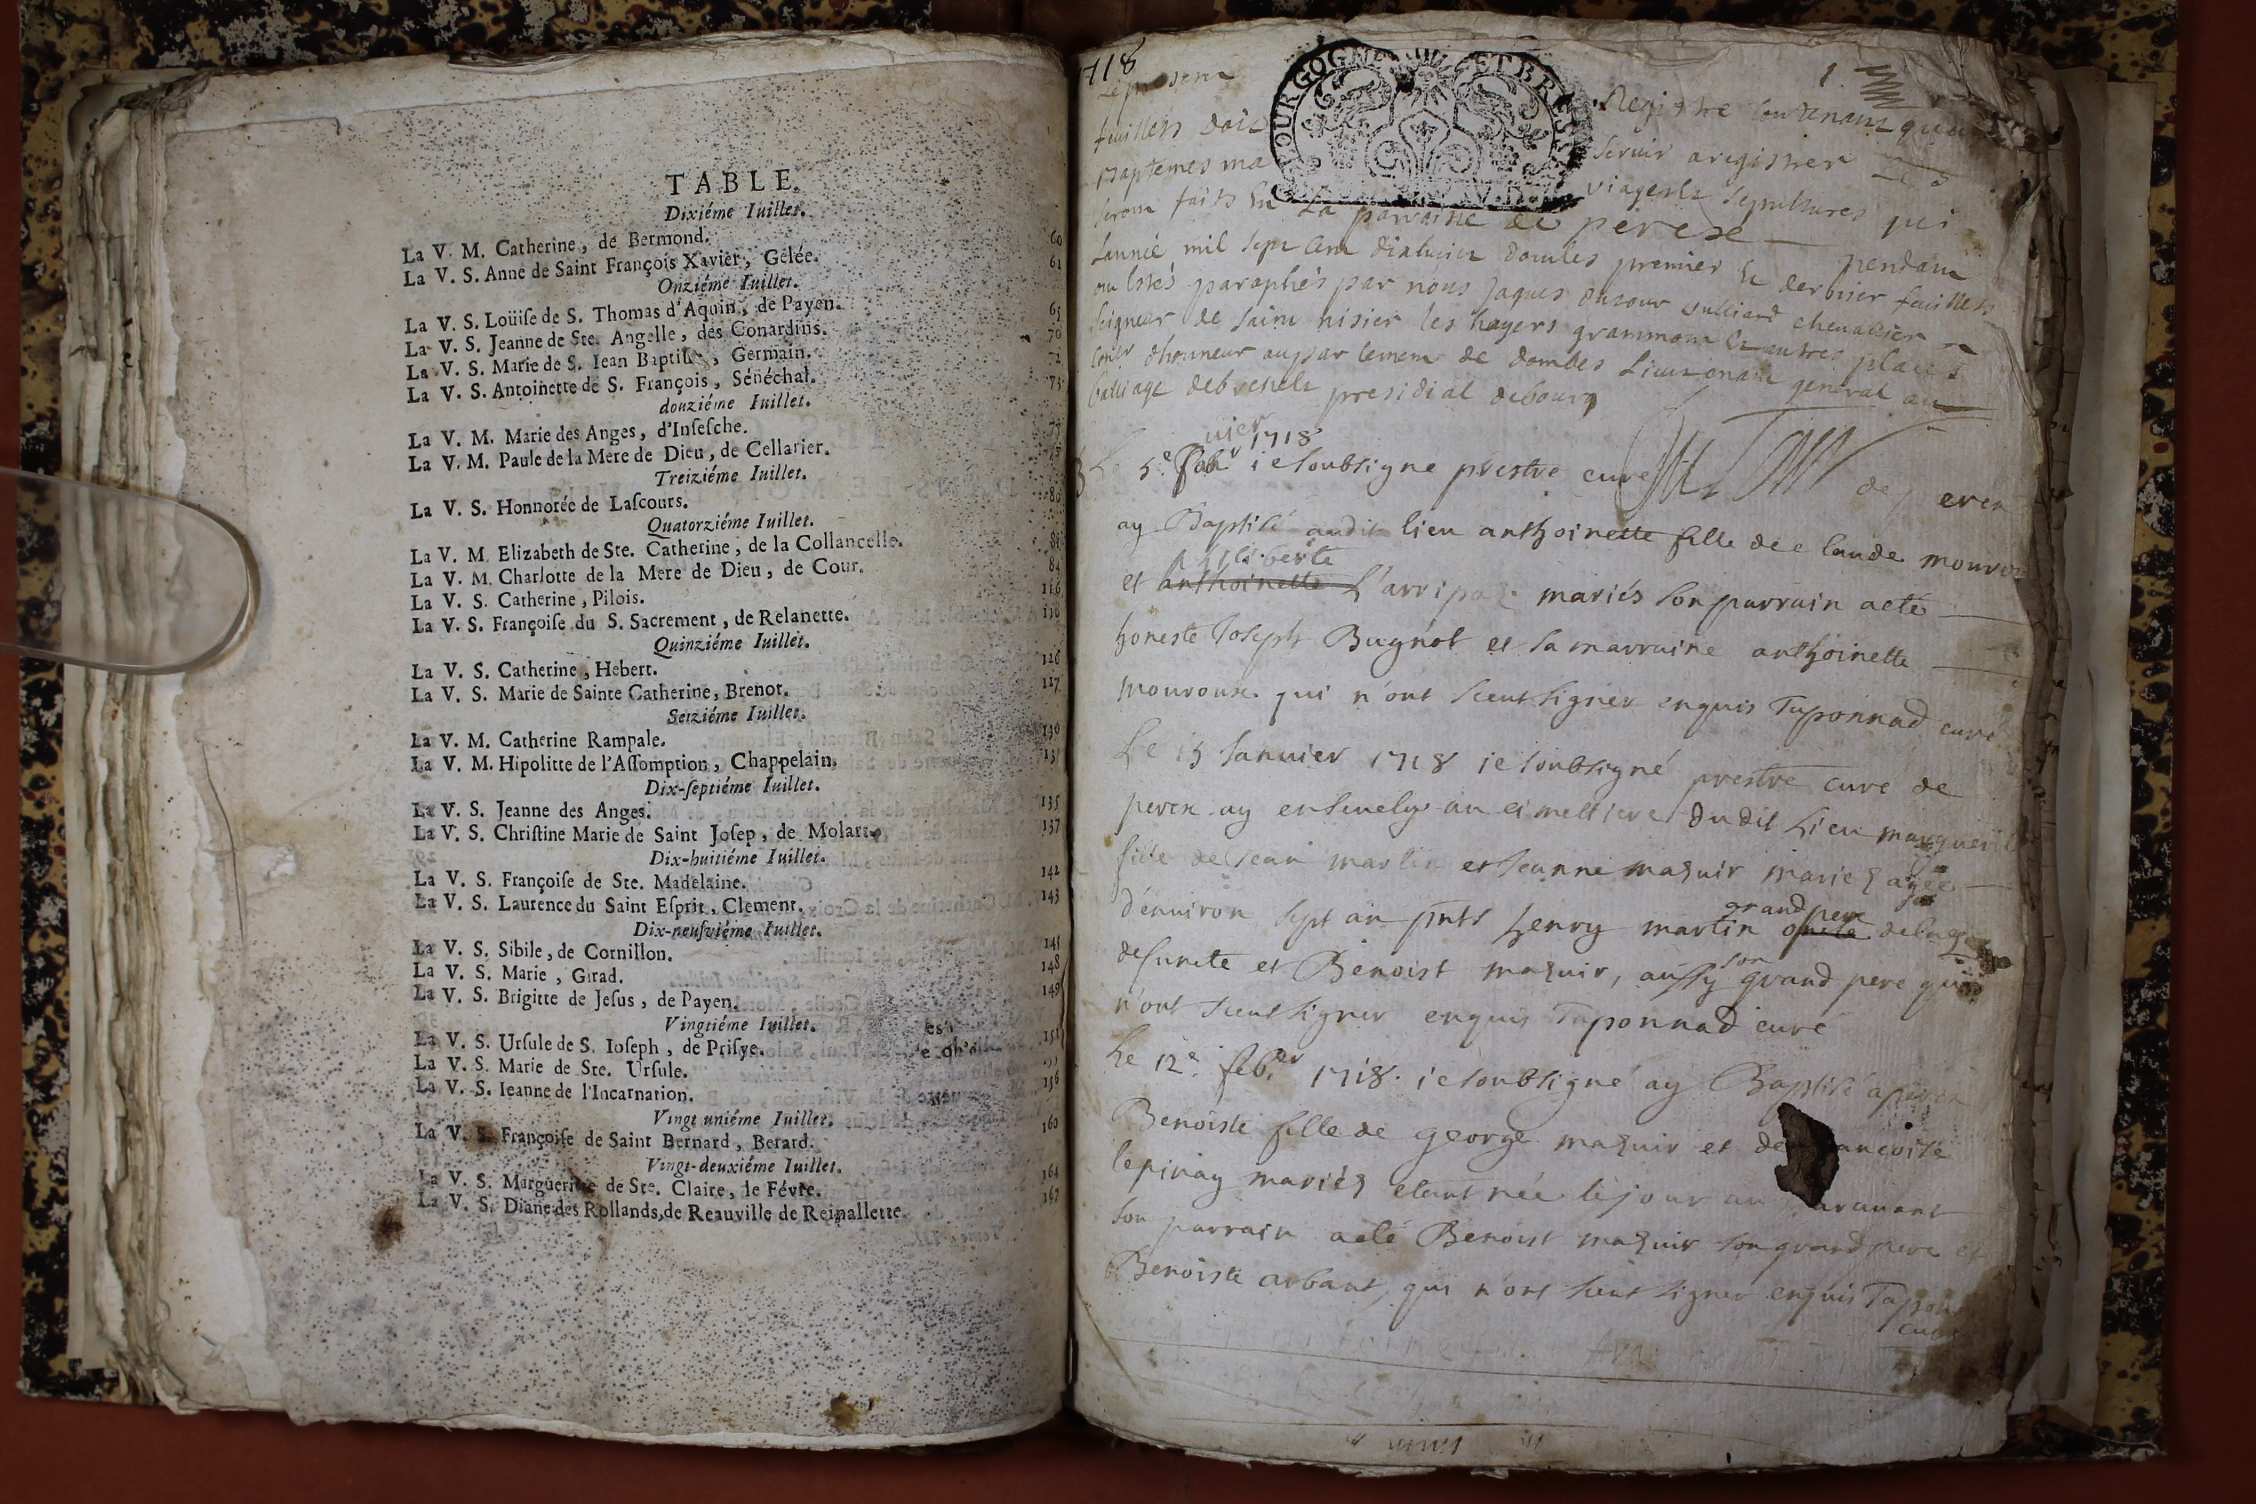 TABLE.
Dixiéme Iuillet.
La V. M. Catherine, de Bermond. 60
La V. S. Anne de Saint François Xavier, Gelée. 61
Onziéme Iuillet.
La V. S. Loüise de S. Thomas d'Aquin, de Payen. 65
La V. S. Jeanne de Ste. Angelle, des Conardins. 70
La V. S. Marie de S. Iean Baptiste, Germain.
La V. S. Antoinette de S. François, Sénéchal. 73
douziéme Iuillet.
La V. M. Marie des Anges, d'Insesche.
La V. M. Paule de la Mere de Dieu, de Cellarier.
Treiziéme Iuillet.
La V. S. Honnorée de Lascours. 80
Quatorziéme Iuillet.
La V. M. Elizabeth de Ste. Catherine, de la Collancelle. 81
La V. M. Charlotte de la Mere de Dieu, de Cour. 84
La V. S. Catherine, Pilois. 116
La V. S. Françoise du S. Sacrement, de Relanette. 118
Quinziéme Iuillet.
La V. S. Catherine, Hebert. 126
La V. S. Marie de Sainte Catherine, Brenot. 127
Seiziéme Iuillet.
La V. M. Catherine Rampale. 130
La V. M. Hipolitte de l'Assomption, Chappelain.
Dix-septiéme Iuillet.
La V. S. Jeanne des Anges. 135
La V. S. Christine Marie de Saint Josep, de Molart. 137
Dix-huitiéme Iuillet.
La V. S. Françoise de Ste. Madelaine. 142
La V. S. Laurence du Saint Esprit, Clement. 143
Dix-neufviéme Iuillet.
La V. S. Sibile, de Cornillon. 145
La V. S. Marie, Girad. 148
La V. S. Brigitte de Jesus, de Payen. 149
Vingtiéme Iuillet.
La V. S. Ursule de S. Ioseph, de Prisye. 151
La V. S. Marie de Ste. Ursule.
La V. S. Ieanne de l'Incarnation. 156
Vingt uniéme Iuillet.
La V. S. Françoise de Saint Bernard, Berard. 160
Vingt-deuxiéme Iuillet.
La V. S. Marguerite de Ste. Claire, le Févre. 164
La V. S. Diane des Rollands, de Reauville de Reinallette. 167
1718
BOURGOGNE ET BRESSE
1
Le present Registre contenant
feuillets servir a registrer les
Baptemes mariages et sepultures qui
seront faits en La parroisse de perex pendant
Lannée mil sept cent dixhuict dont les premier et dernier feuillets
ont estés paraphés par nous Jaques chevallier
seigneur de saint nisier les hayers grammont et autres places
dhonneur au parlement de dombes Lieutenant general au
bailliage de bresse et presidial de bourg
Le 5e Janvier 1718 ie soubsigne prestre curé de perex
ay Baptisé audit lieu anthoinette fille de claude mouroux
et philiberte mariés son parrain a eté
honeste Joseph Bugnot et sa marraine anthoinette
mouroux qui n'ont sceut signer enquis Taponnad curé
Le 15 Janvier 1718 ie soubsigné prestre curé de
perex ay ensevely au cimettiere dudit Lieu marguerite
fille de Jean martin et Jeanne mazuir mariez agée
d'environ sept an pnts henry martin grand pere de la
defuncte et Benoist mazuir, aussy son grand pere qui
n'ont sceut signer enquis Taponnad curé
Le 12e feb.er 1718. ie soubsigné ay Baptisé a perex
Benoiste fille de george mazuir et de
lepinay mariéz etant née le jour au
son parrain a eté Benoist mazuir son grand pere et
Benoiste arbant, qui n'ont sceut signer enquis Tapon
curé